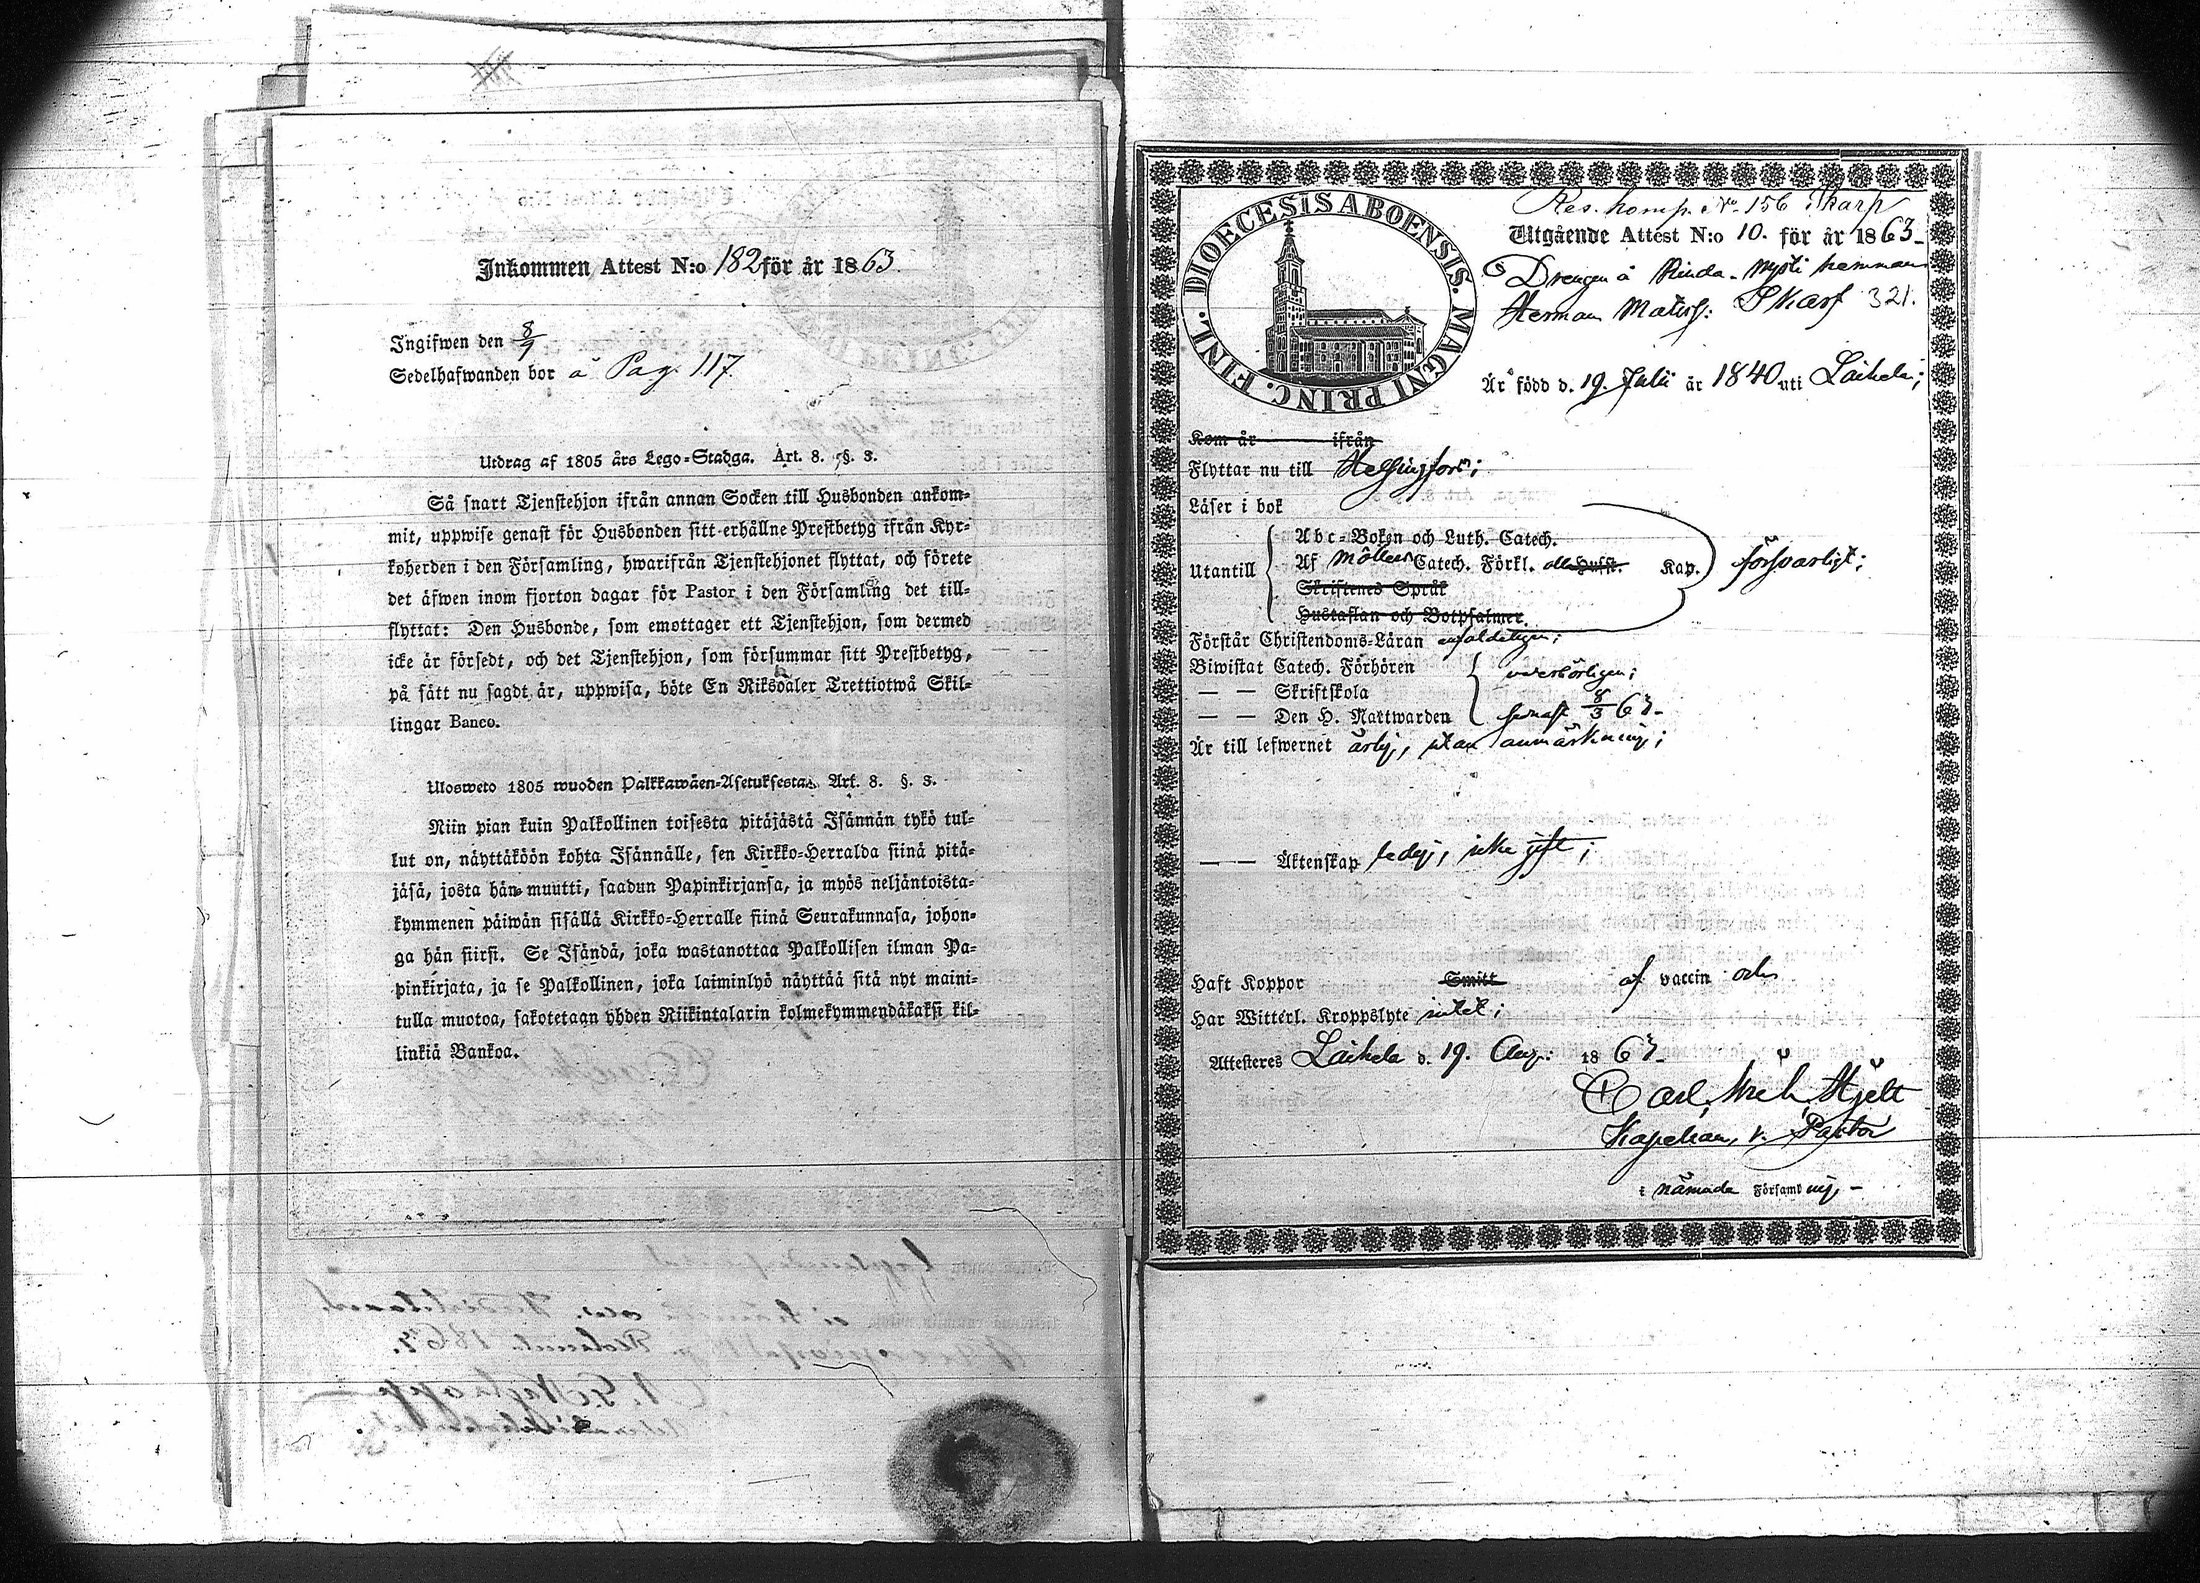 Inkommen Attest N:o 182 för år 1863.
Ingifwen den 8/9
Sedelhafwanden bor å Pag. 117
Utdrag af 1805 års Lego-Stadga. Art. 8. §. 3.
Så snart Tjenstehjon ifrån annan Socken till Husbonden ankom-
mit, uppwise genast för Husbonden sitt erhållne Prestbetyg ifrån Kyr-
koherden i den Församling, hwarifrån Tjenstehjonet flyttat, och förete
det äfwen inom fjorton dagar för Pastor i den Församling det till-
flyttat: Den Husbonde, som emottager ett Tjenstehjon, som dermed
icke är försedt, och det Tjenstehjon, som försummar sitt Prestbetyg,
på sätt nu sagdt är, uppwisa, böte En Riksdaler Trettiotwå Skil-
lingar Banco.
Ulosweto 1805 wuoden Palkkawäen-Asetuksesta. Art. 8. §. 3.
Niin pian kuin Palkollinen toisesta pitäjästä Isännän tykö tul-
lut on, näyttäköön kohta Isännälle, sen Kirkko-Herralda siinä pitä-
jäsä, josta hän muutti, saadun Papinkirjansa, ja myös neljäntoista-
kymmenen päiwän sisällä Kirkko-Herralle siinä Seurakunnasa, johon-
ga hän siirsi. Se Isändä, joka wastanottaa Palkollisen ilman Pa-
pinkirjata, ja se Palkollinen, joka laiminlyö näyttää sitä nyt maini-
tulla muotoa, sakotetaan yhden Riikintalarin kolmekymmendäkaksi kil-
linkiä Bankoa.
DIOECESIS ABOENSIS. MAGNI PRINC. FINL.
Res. komp. No. 156 Skarp
Utgående Attest N:o 10. för år 1863.
Drengen å Rinda-Nysti hemman
Herman Matss: Skarp 321.
Är född d. 19. Julii år 1840 uti Laihela;
Kom år ifrån
Flyttar nu till Helsingfors;
Läser i bok
Abc-Boken och Luth. Catech.
Utantill Af Möllers Catech. Förkl. alla Hufst. Kap. försvarligt;
Skriftenes Språk
Hustaflan och Botpsalmer.
Förstår Christendoms-Läran enfaldeligen;
Biwistat Catech. Förhören vederbörligen;
— — Skriftskola
— — Den H. Nattwarden senast 8/3 63.
Är till lefwernet ärlig, utan anmärkning;
— — Äktenskap ledig, icke gift;
Haft Koppor Smitt af vaccin
Har Witterl. Kroppslyte intet;
Attesteres Laihela d. 19. Aug: 1863.
Carl Hjelt
Kapellan, v. Pastor
i nämnde Församling.